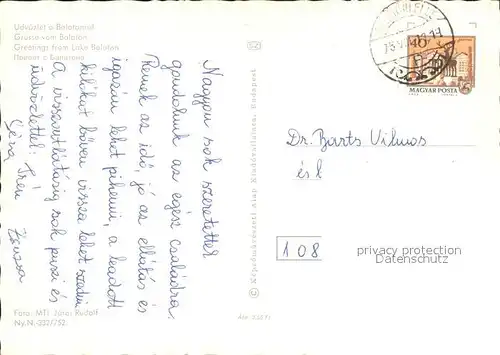 Üdvözlet a Balatonról
Grüsse vom Balaton
Greetings from Lake Balaton
Привет с Балатона
Nagyon sok szeretettel
gondolunk az egész családra.
Remek az idő, jó az ellátás és
igazán lehet pihenni, a leadott
kilókat bőven vissza lehet szedni.
A viszontlátásig sok puszi és
üdvözlettel:
Géza Irén Zsuzsa
Foto: MTI Járai Rudolf
Ny.N.-332/752
© Képzőművészeti Alap Kiadóvállalata, Budapest
Ára: 2,20 Ft
MAGYAR POSTA
Dr. Barts Vilmos
és
108
privacy protection
Datenschutz